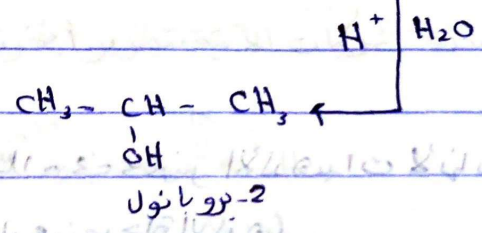 H⁺ H₂O
CH₃ - CH - CH₃
OH
2-بروبانول